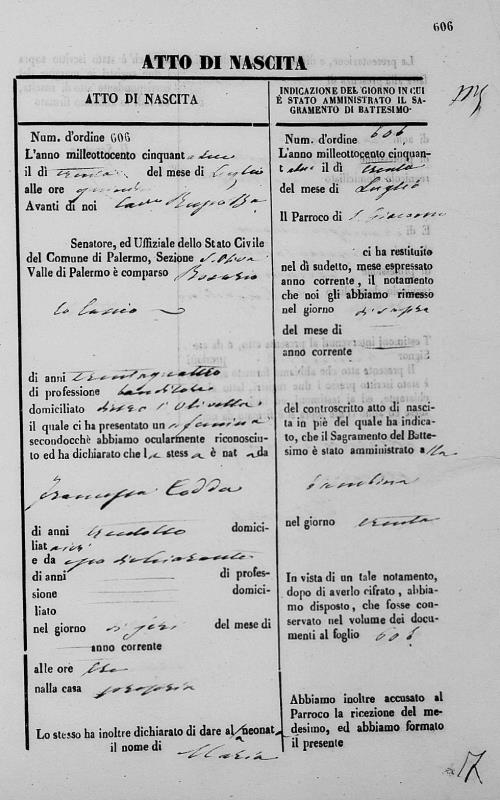 606
ATTO DI NASCITA
ATTO DI NASCITA
Num. d'ordine 606
L'anno milleottocento cinquantadue
il di trenta del mese di Luglio
alle ore
Avanti di noi
Senatore, ed Uffiziale dello Stato Civile
del Comune di Palermo, Sezione
Valle di Palermo è comparso Rosario
lo Cascio
di anni trentaquattro
di professione banditore
domiciliato dietro l'Olivella
il quale ci ha presentato una femina
secondocchè abbiamo ocularmente riconosciu-
to ed ha dichiarato che la stessa è nata da
Francesca Codda
di anni trentotto domici-
liata ivi
e da esso dichiarante
di anni di profes-
sione domici-
liato
nel giorno di jeri del mese di
anno corrente
alle ore tre
nalla casa propria
Lo stesso ha inoltre dichiarato di dare alla neonata
il nome di
Maria
INDICAZIONE DEL GIORNO IN CUI
È STATO AMMINISTRATO IL SA-
GRAMENTO DI BATTESIMO.
Num. d'ordine 606
L'anno milleottocento cinquan-
tadue il di trenta
del mese di Luglio
Il Parroco di S. Giacomo
ci ha restituito
nel dì sudetto, mese espressato
anno corrente, il notamento
che noi gli abbiamo rimesso
nel giorno di sopra
del mese di
anno corrente
del controscritto atto di nasci-
ta in piè del quale ha indica-
to, che il Sagramento del Batte-
simo è stato amministrato alla
bambina
nel giorno trenta
In vista di un tale notamento,
dopo di averlo cifrato, abbia-
mo disposto, che fosse con-
servato nel volume dei docu-
menti al foglio 606
Abbiamo inoltre accusato al
Parroco la ricezione del me-
desimo, ed abbiamo formato
il presente